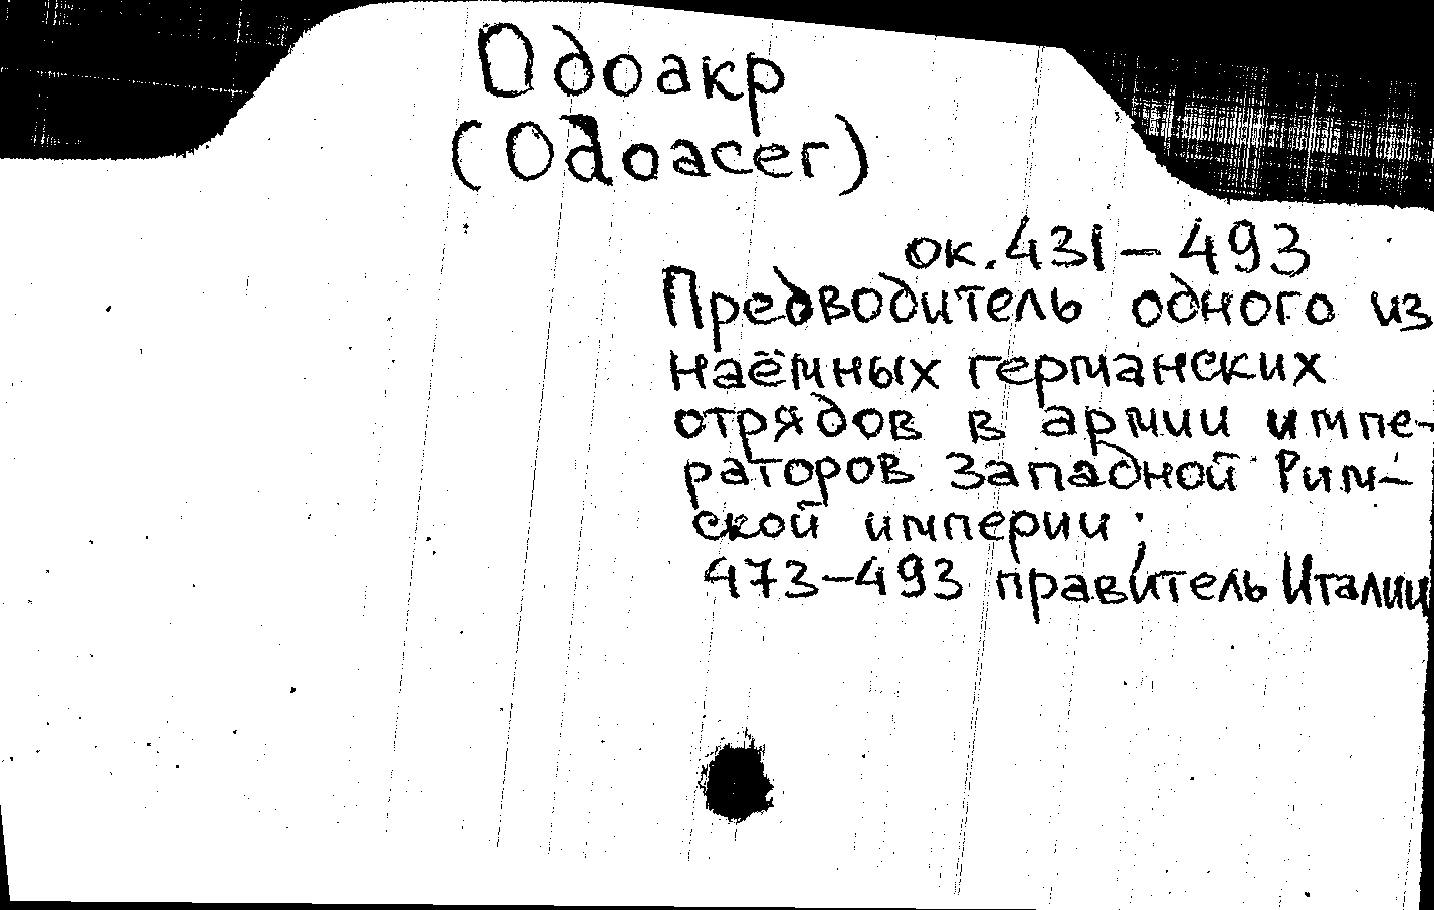 Одоакр
(Odoacer)
ок. 431 – 493
Предводитель одного из
наёмных германских
отрядов в армии импе-
раторов Западной Рим-
ской империи;
473–493 правитель Италии